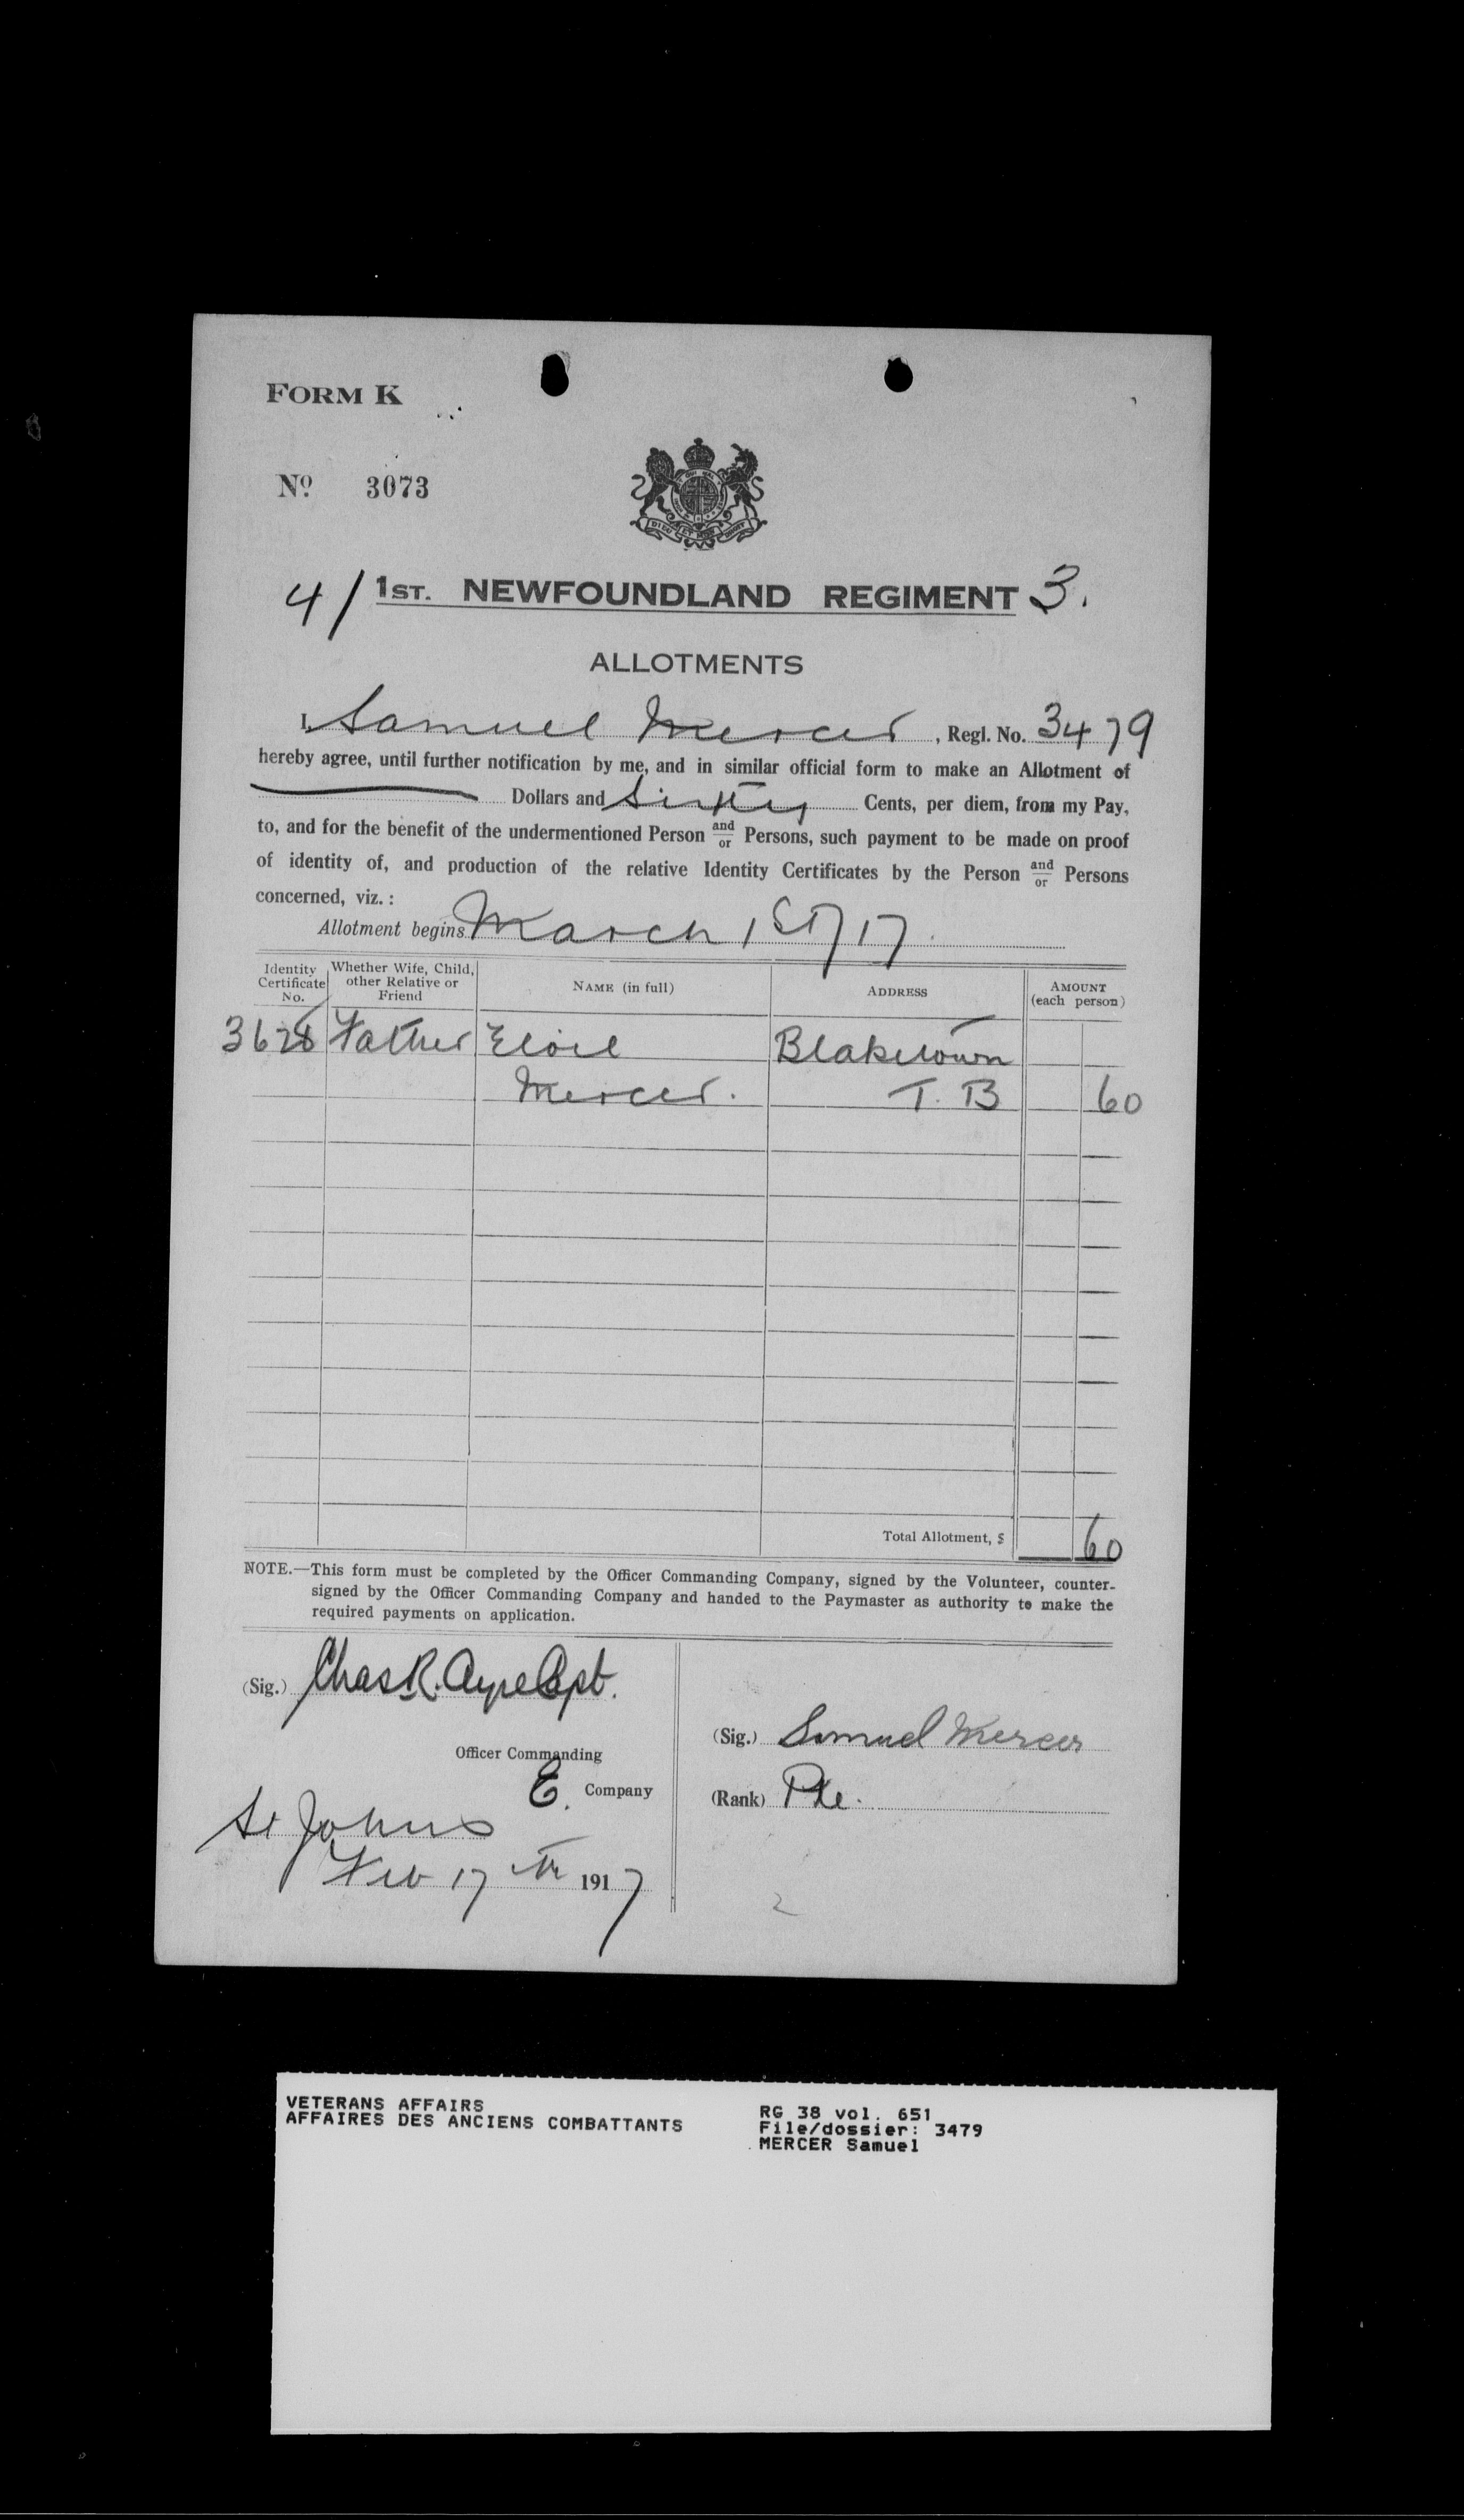 FORM K
No 3073
4/ 1ST. NEWFOUNDLAND REGIMENT 3.
ALLOTMENTS
I, Samuel Mercer, Regl. No. 3479
hereby agree, until further notification by me, and in similar official form to make an Allotment of
Dollars and Sixty Cents, per diem, from my Pay,
to, and for the benefit of the undermentioned Person and/or Persons, such payment to be made on proof
of identity of, and production of the relative Identity Certificates by the Person and/or Persons
concerned, viz.:
Allotment begins March 1st/17
Identity Certificate No. Whether Wife, Child, other Relative or Friend NAME (in full) ADDRESS AMOUNT (each person)
3628 Father Blaketown
Mercer. T. B 60
Total Allotment, $ 60
NOTE.—This form must be completed by the Officer Commanding Company, signed by the Volunteer, counter-
signed by the Officer Commanding Company and handed to the Paymaster as authority to make the
required payments on application.
(Sig.) Chas R. Ayre Capt.
Officer Commanding
E. Company
St Johns
Feb 17th 1917
(Sig.) Samuel Mercer
(Rank) Pte.
2
VETERANS AFFAIRS
AFFAIRES DES ANCIENS COMBATTANTS
RG 38 vol. 651
File/dossier: 3479
MERCER Samuel